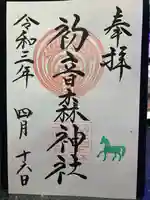 奉拝
初音森神社
令和三年 四月 十六日